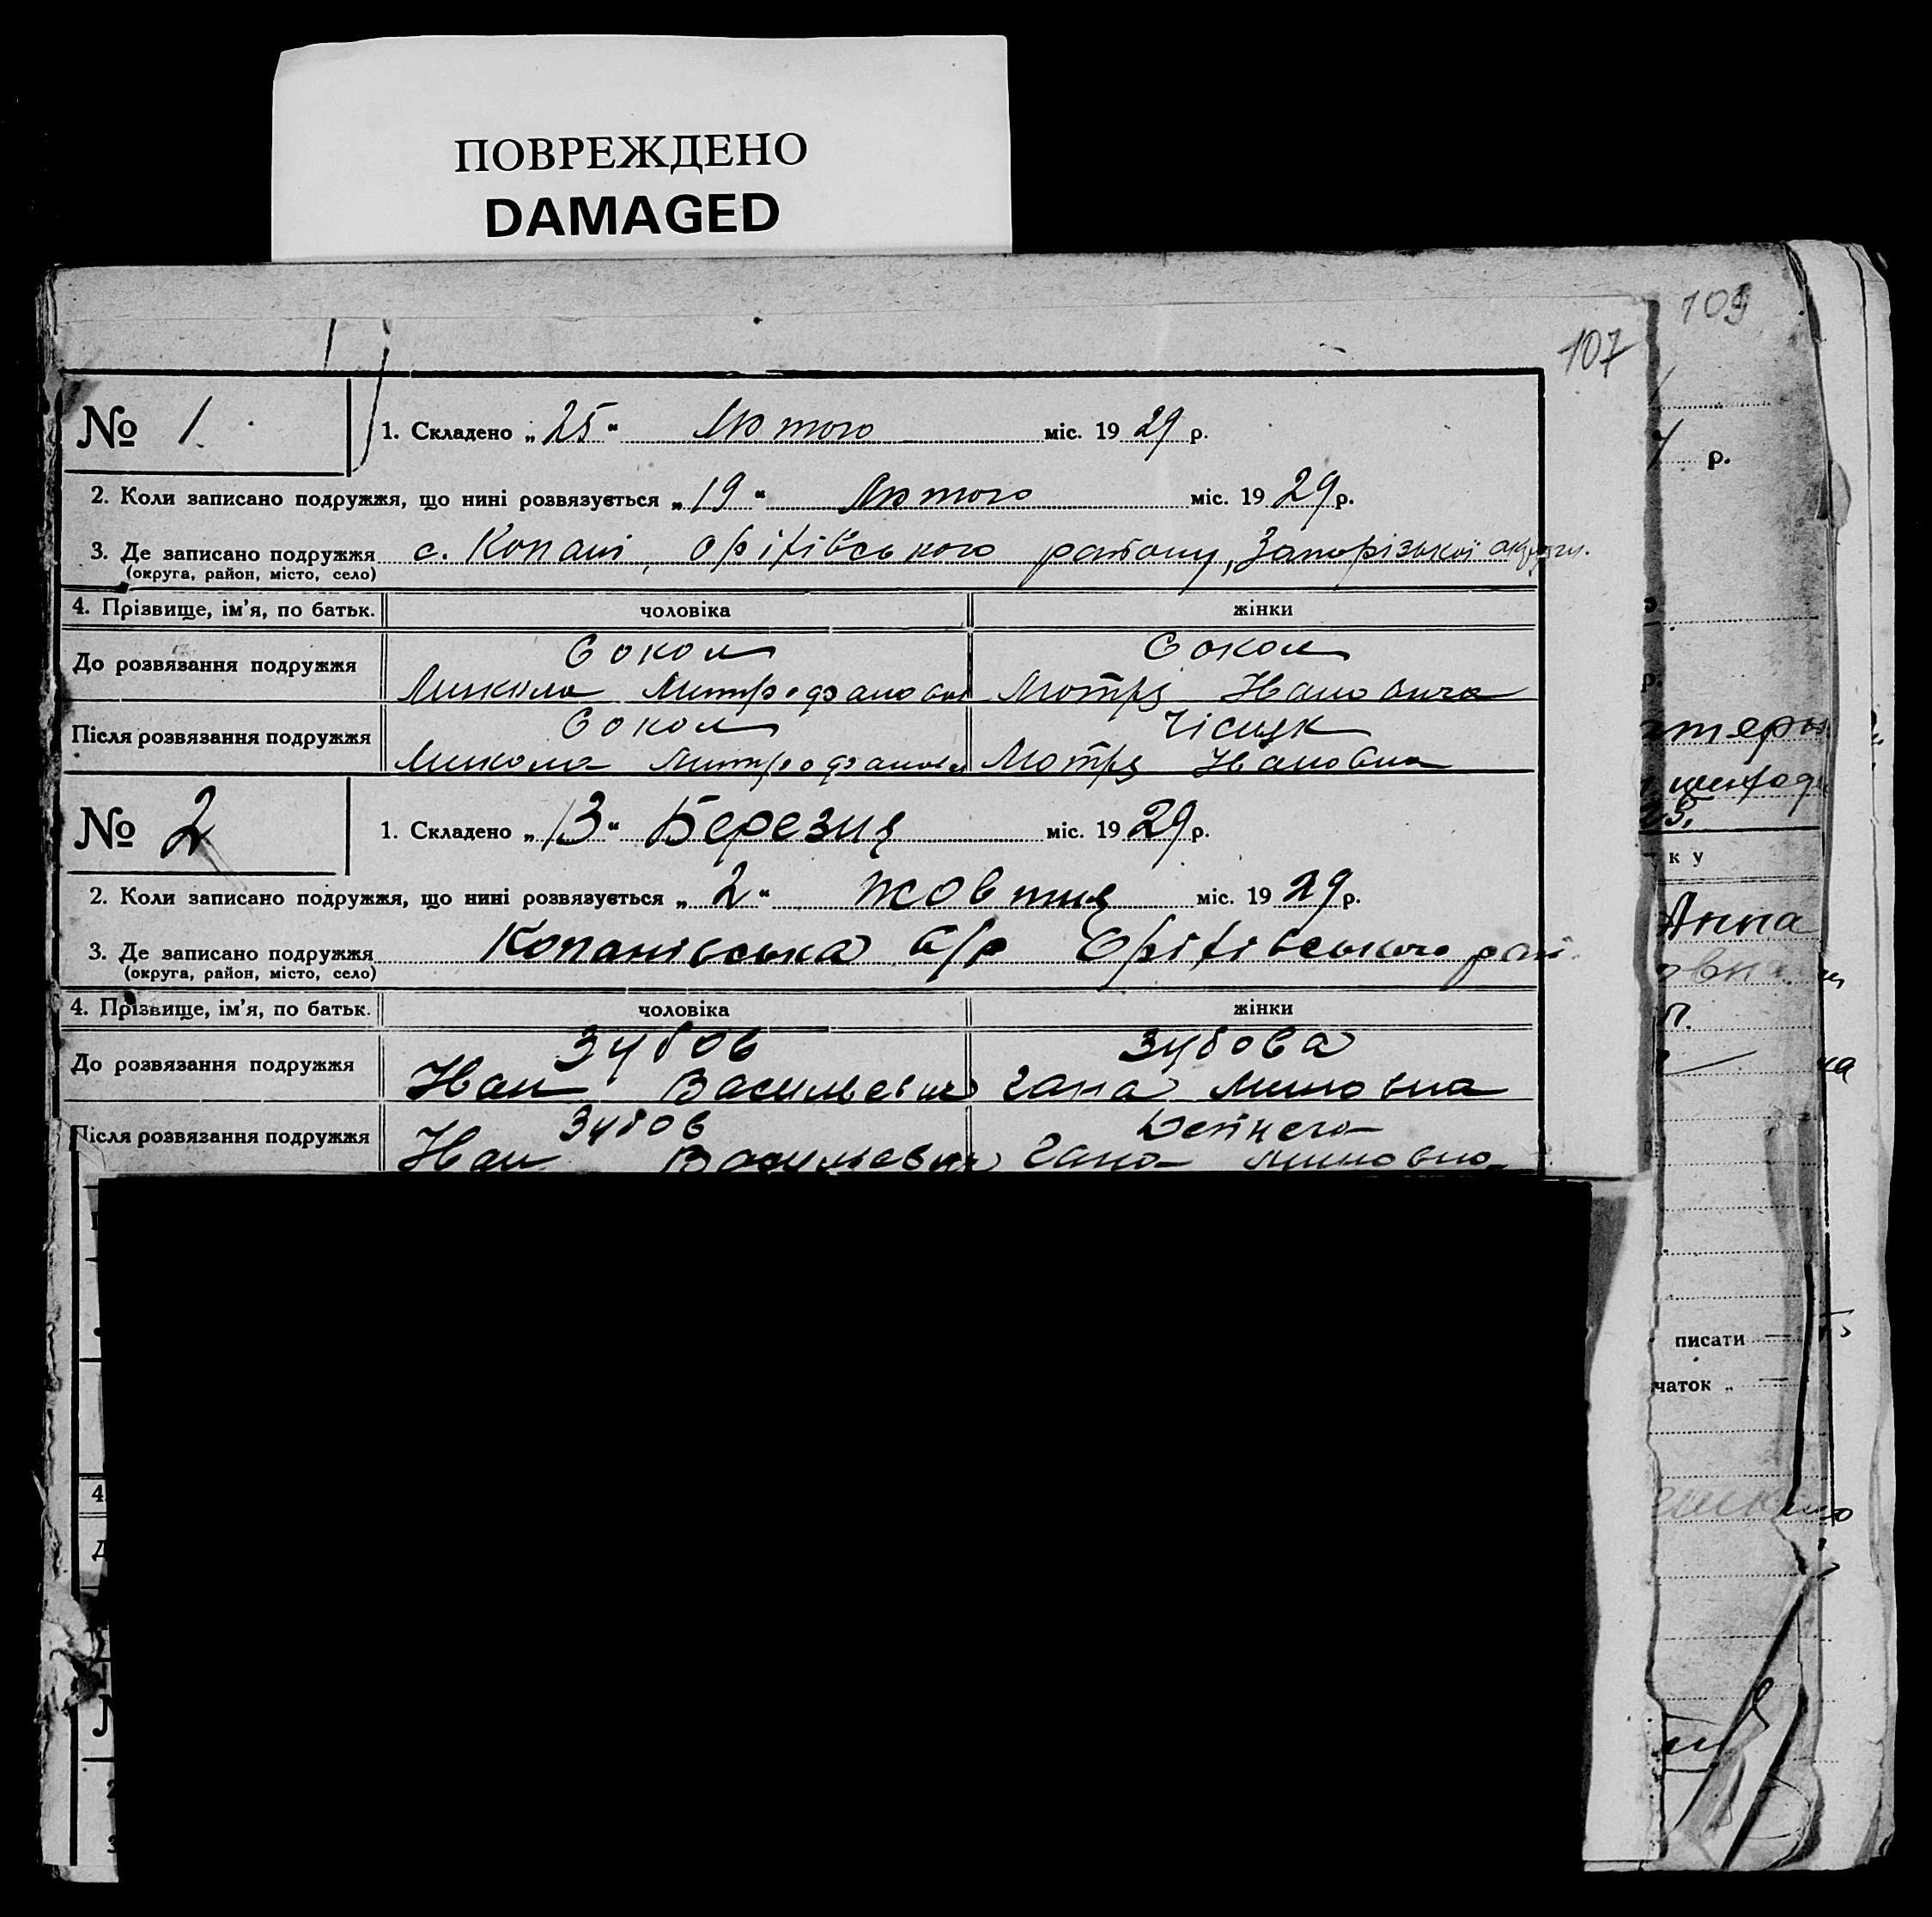 ПОВРЕЖДЕНО
DAMAGED
109
107
№ 1. 1. Складено „ 25 “ Лютого міс. 19 29 р.
2. Коли записано подружжя, що нині розвязується „ 19 “ Лютого міс. 19 29 р.
3. Де записано подружжя с. Копані, Оріхівського району, Запорізької округи.
(округа, район, місто, село)
4. Прізвище, ім’я, по батьк. чоловіка жінки
Сокол Сокол
До розвязання подружжя
Микола Митрофанович Мотря Івановича
Сокол
Після розвязання подружжя
Микола Митрофанович Мотря Івановна
№ 2 1. Складено „ 13 “ Березня міс. 19 29 р.
2. Коли записано подружжя, що нині розвязується „ 2 “ жовтня міс. 19 29 р.
3. Де записано подружжя Копанівська с/р Оріхівського рай.
(округа, район, місто, село)
4. Прізвище, ім’я, по батьк. чоловіка жінки
Зубов Зубова
До розвязання подружжя
Іван Васильевич Гана Миновна
Зубов
Після розвязання подружжя
Іван Васильевич Гана Миновна
р.
ку
Анна
овна
писати
чаток „
4.